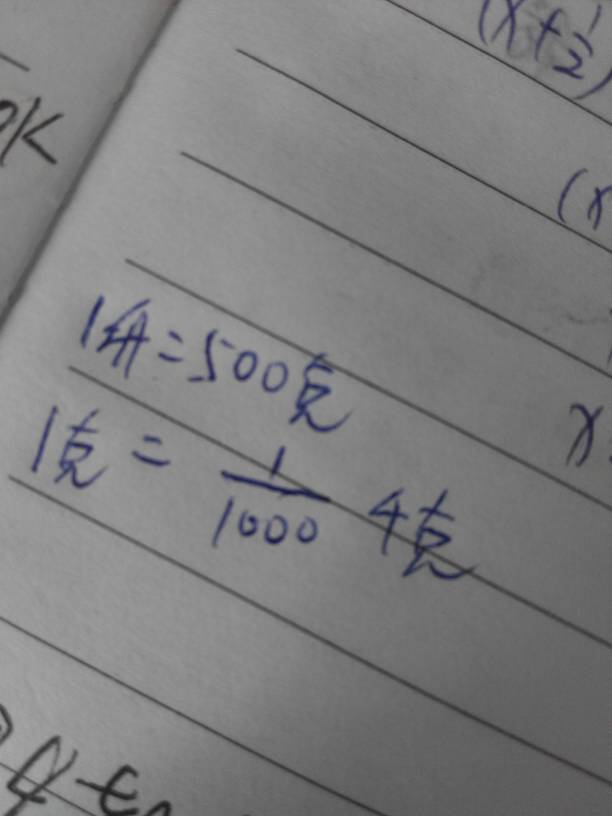 (x+1/2)
(x
x
1斤=500克
1克=1/1000 千克